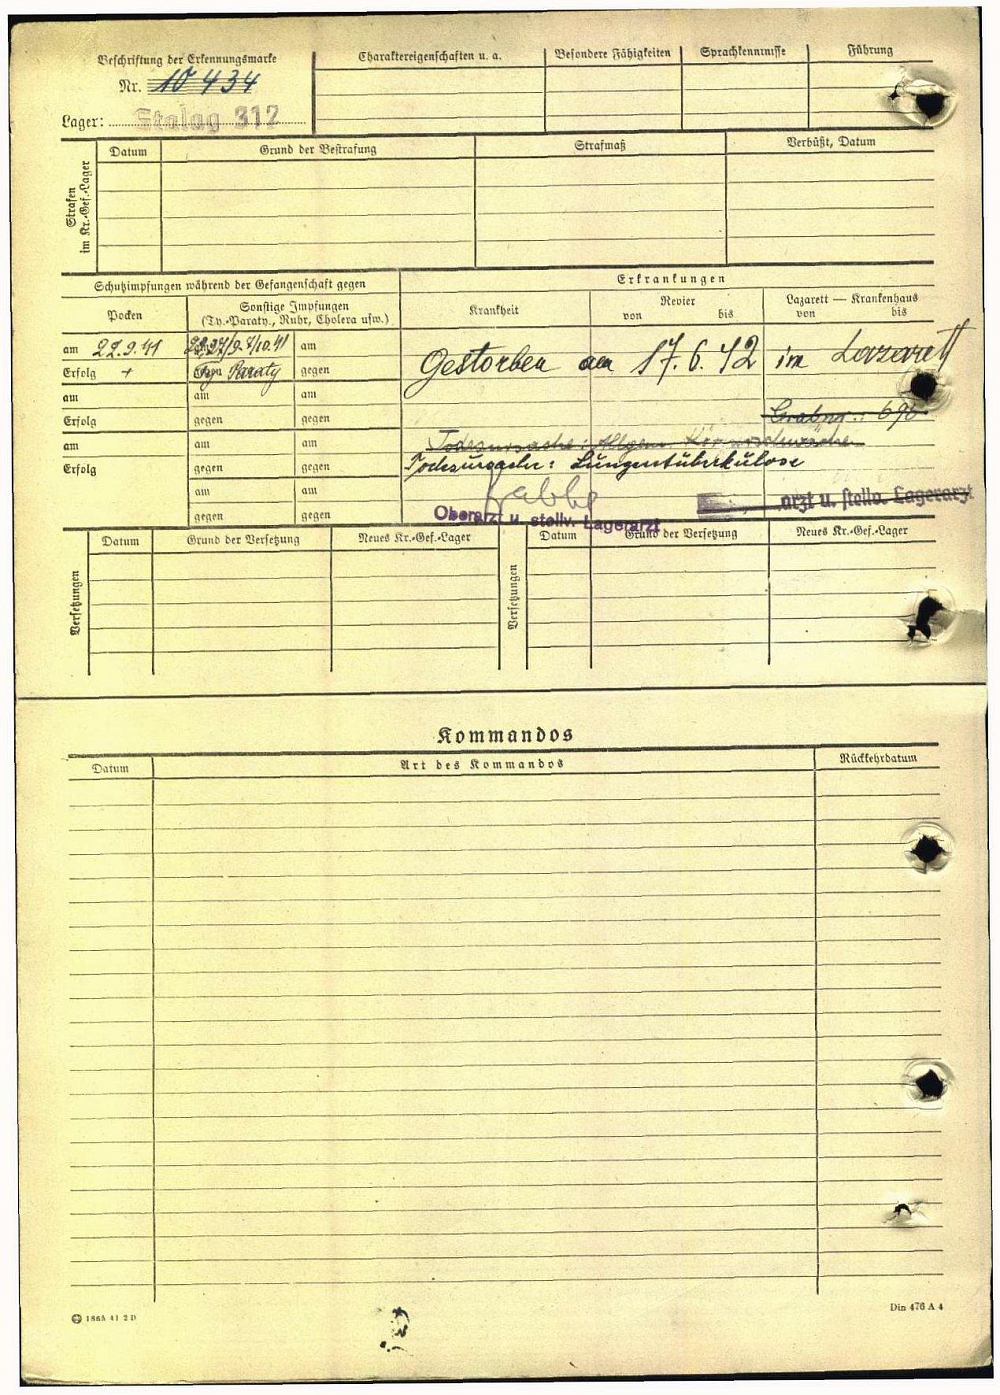 Beschriftung der Erkennungsmarke
Nr. 10434
Lager: Stalag 312
Charaktereigenschaften u. a. Besondere Fähigkeiten Sprachkenntnisse Führung
Strafen im Kr.-Gef.-Lager
Datum Grund der Bestrafung Strafmaß Verbüßt, Datum
Schutzimpfungen während der Gefangenschaft gegen
Erkrankungen
Pocken
Sonstige Impfungen
(Ty.-Paraty., Ruhr, Cholera usw.)
Krankheit
Revier
von bis
Lazarett — Krankenhaus
von bis
am 22.9.41 am
Erfolg + Paraty gegen
Gestorben am 17.6.42 im Lazarett
am am am
Erfolg gegen gegen
Grabnr.: 695
am am am
Todesursache: Allgem. Körperschwäche
Erfolg gegen gegen
Todesursache: Lungentüberkülose
am am
gegen gegen
arzt u. stellv. Lagerarzt
Oberarzt u. stellv. Lagerarzt
Versetzungen
Datum Grund der Versetzung Neues Kr.-Gef.-Lager
Versetzungen
Datum Grund der Versetzung Neues Kr.-Gef.-Lager
Kommandos
Datum Art des Kommandos Rückkehrdatum
1865 41 2 D
Din 476 A 4